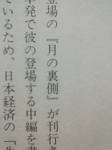 登場の『月の裏側』が刊行さ
本発で彼の登場する中編を
ているため、日本経済の「